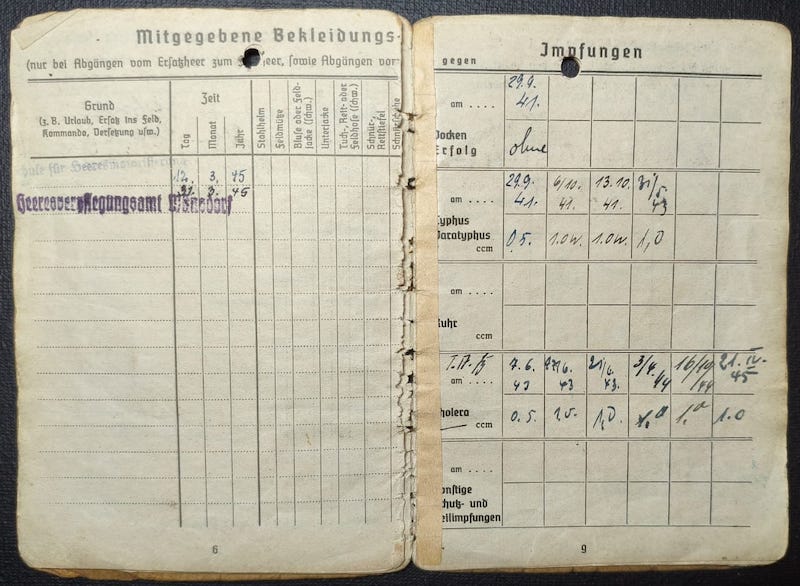 Mitgegebene Bekleidungs-
(nur bei Abgängen vom Ersatzheer zum heer, sowie Abgängen vor
Grund
(z. B. Urlaub, Ersatz ins Feld,
Kommando, Versetzung usw.)
Zeit
Tag
Monat
Jahr
Stahlhelm
Feldmütze
Bluse oder Feld-
jacke (schw.)
Unterjacke
Tuch-, Reit- oder
Feldhose (schw.)
Schnür-,
Reitstiefel
Schnürschuhe
ule für Heeresmotorisierung
12. 3. 45
21. 3. 45
Heeresverpflegungsamt
6
Impfungen
gegen
am . . . .
29.9.
41.
Pocken
Erfolg
ohne
am . . . .
29.9. 6/10. 13.10. 31/5
41. 41. 41. 43
Typhus
Paratyphus
ccm
0.5. 1.0 1.0 1,0
am . . . .
Ruhr
ccm
am . . . .
7.6. 21/6. 3/4. 21. IV.
43 43 43. 44 44 45
Cholera
ccm
0.5. 1,0 1,0 1,0 1.0
am . . . .
onstige
chutz- und
eilimpfungen
9